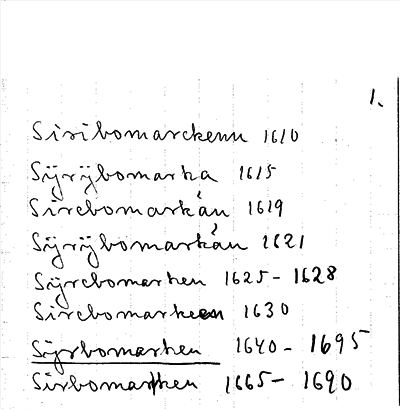 1.
Siribomarckenn 1610
Sÿrÿbomarka 1615
Sirebomarkån 1619
Sÿrÿbomarkån 1621
Sÿrebomarken 1625-1628
Sirebomarkeen 1630
Sÿrbomarken 1640-1695
Sirbomarken 1665-1690